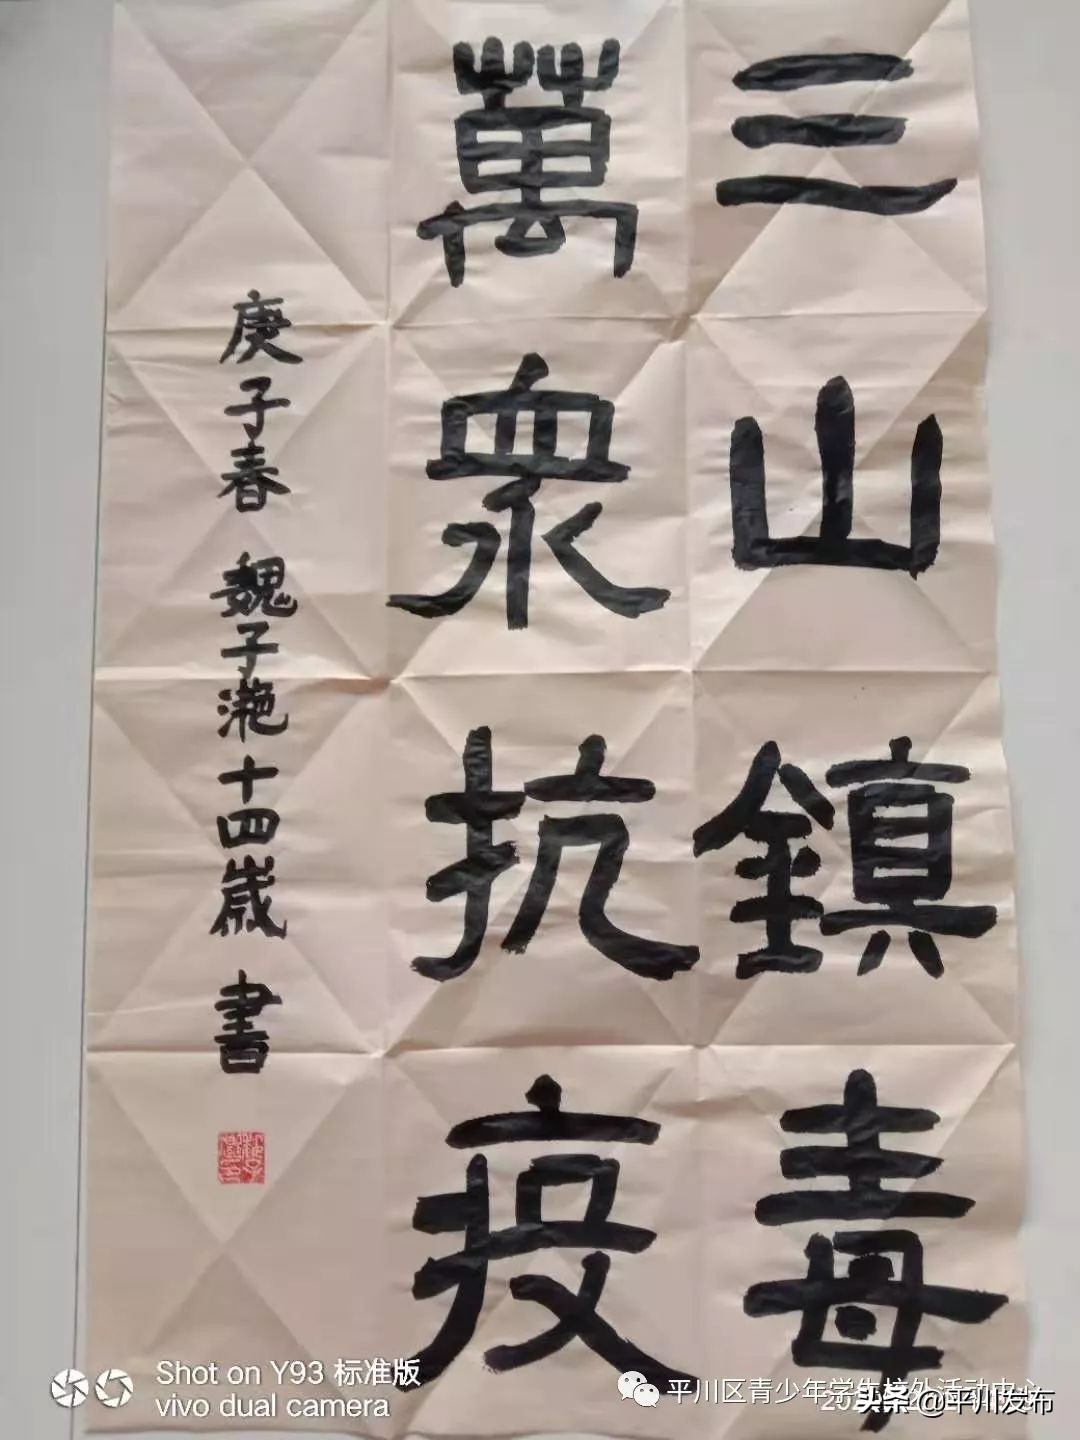 三山鎮毒
萬眾抗疫
庚子春 魏子滟十四歲 書
Shot on Y93 标准版
vivo dual camera
平川区青少年学生校外活动中心
头条 @平川发布